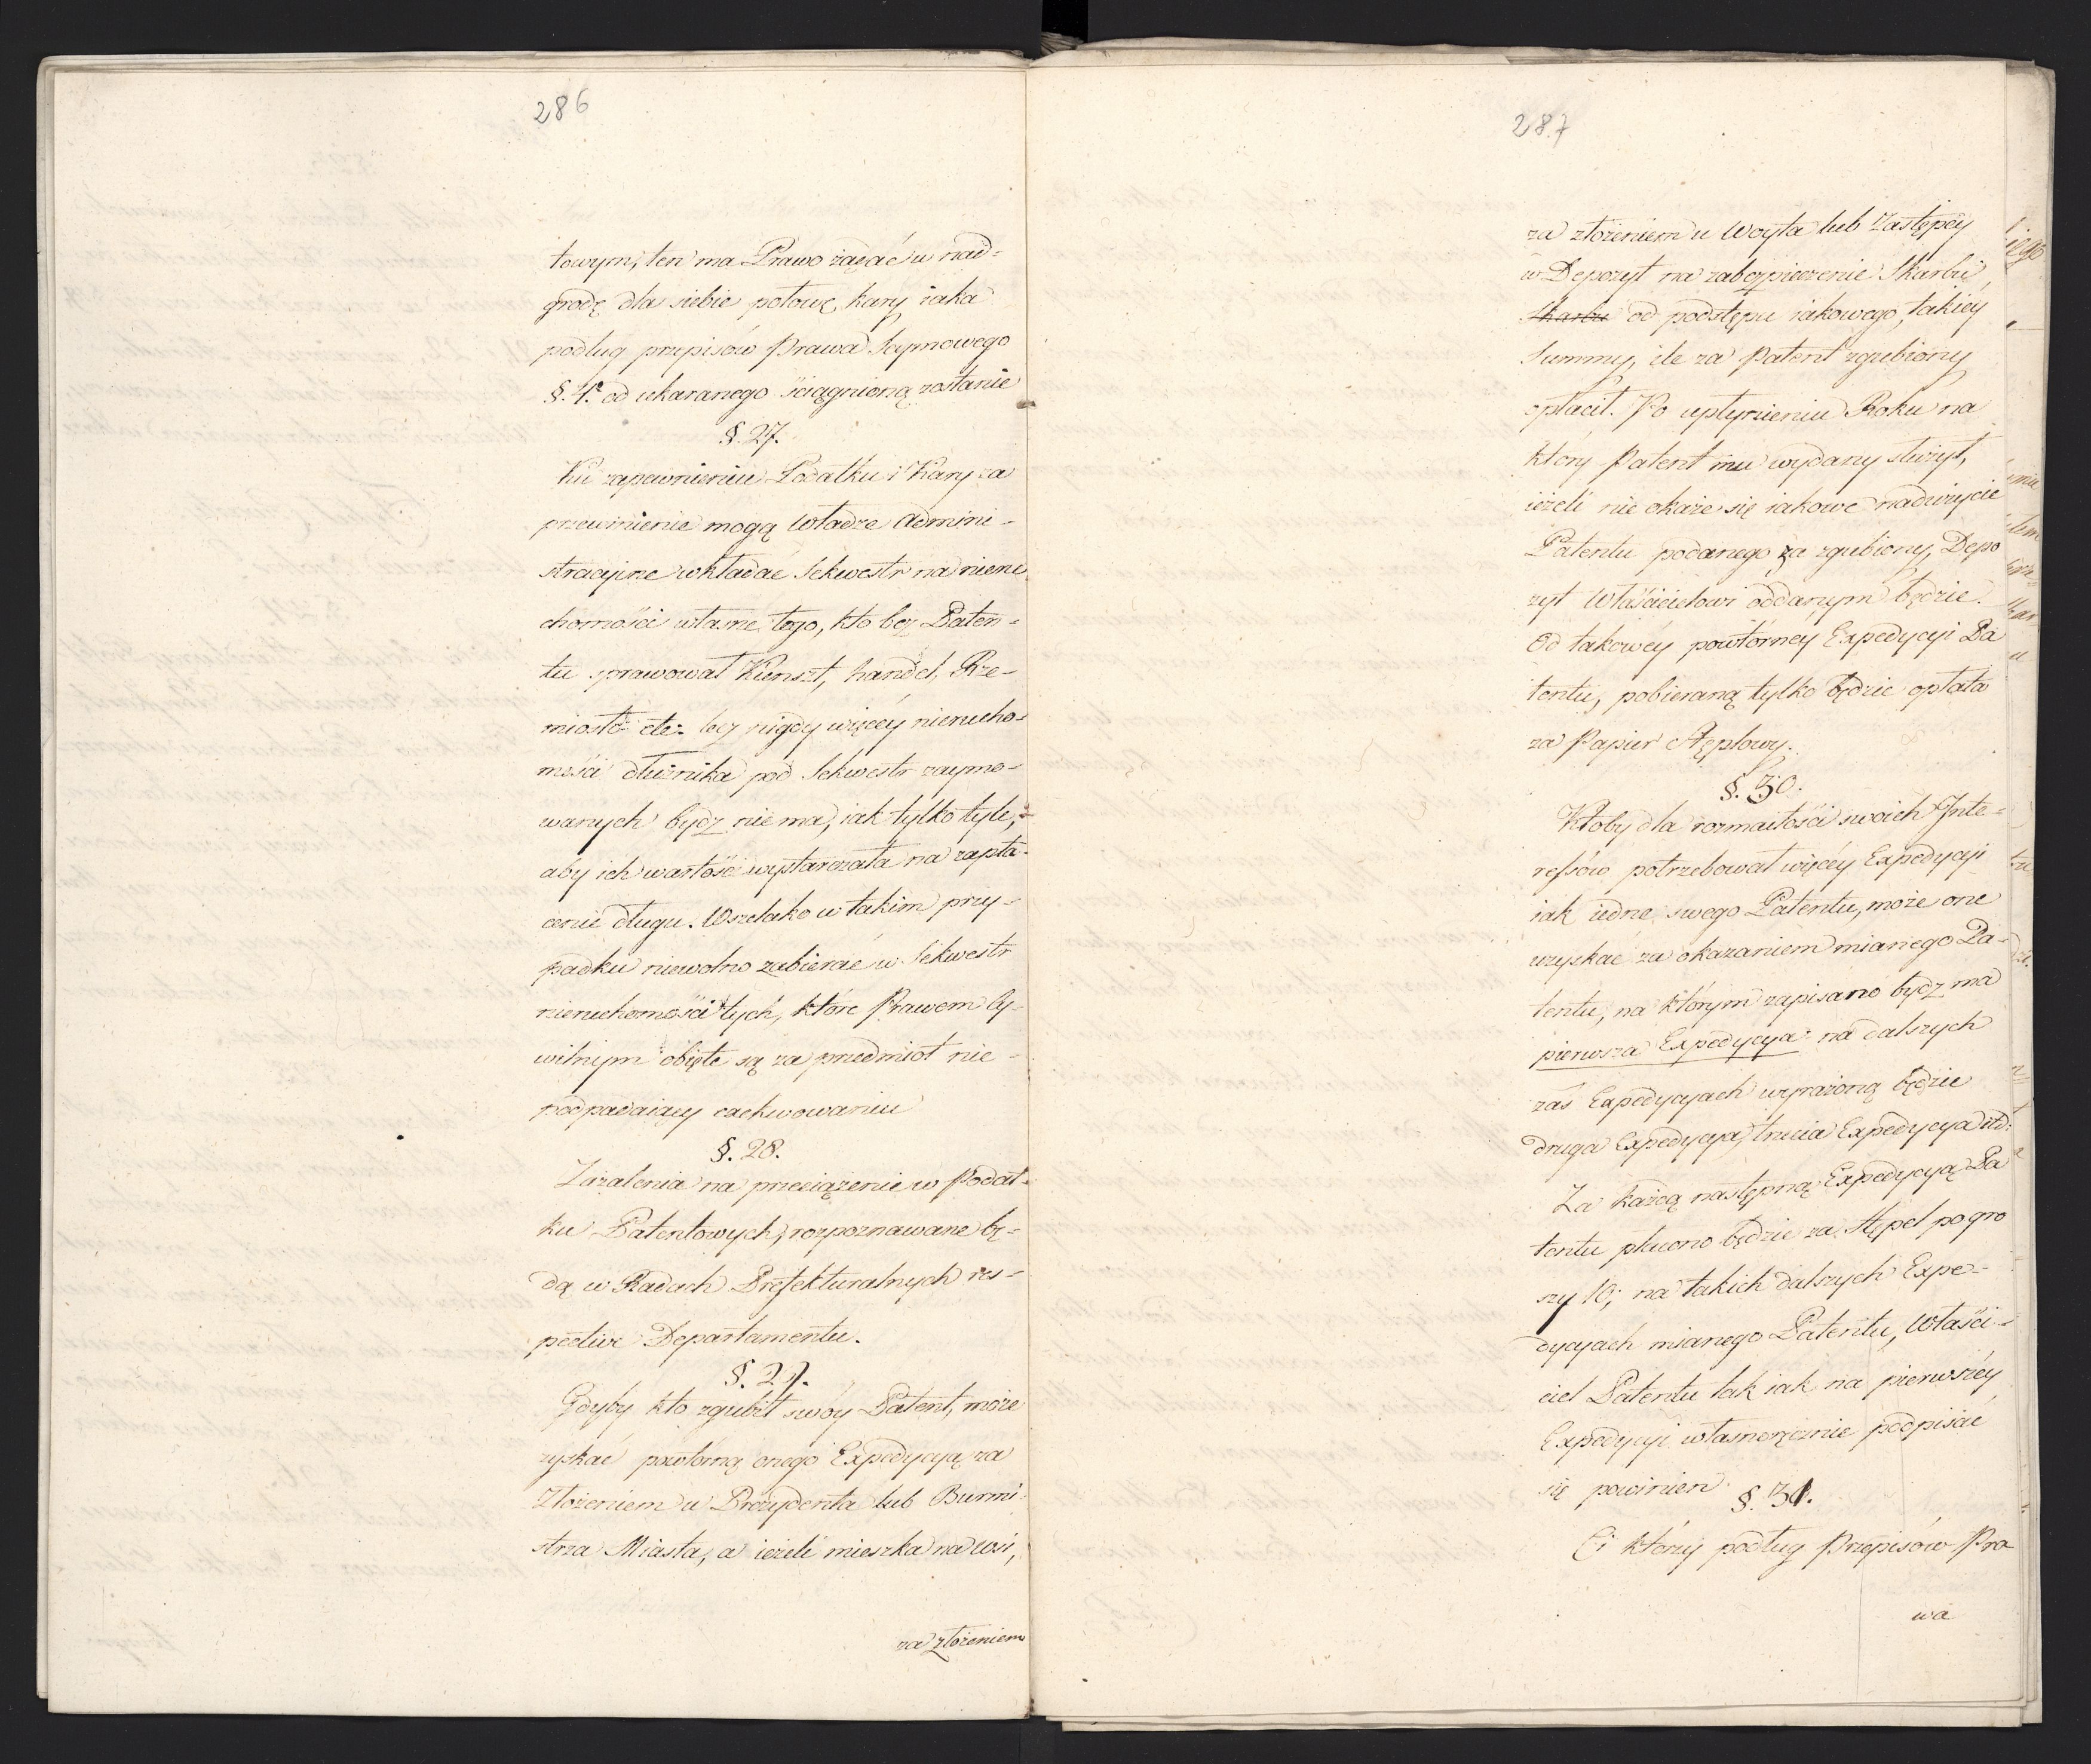 286
towym, ten ma Prawo żądać w nad=
grodę dla siebie połowę kary iaka
podług przepisów Prawa Seymowego
§. 4. od ukaranego ściągnioną zostanie
§. 27.
Ku zapewnieniu Podatku i Kary za
przewinienie mogą Władze Admini-
stracyine wkładać Sekwestr na nieru
chomości własne tego, kto bez Paten=
tu sprawował Kunszt, handel, Rze-
miosło etc. lecz nigdy więcéy nierucho=
mości dłużnika pod Sekwestr zaymo-
wanych bydz nie ma, iak tylko tyle,
aby ich wartość wystarczała na zapła-
cenie długu. Wszelako w takim przy-
padku niewolno zabierać w Sekwestr
nieruchomości tych, które Prawem Cy-
wilnym obięte są za przedmiot nie-
podpadaiący exekwowaniu
§. 28.
Zażalenia na przeciążenie w Podat-
ku Patentowych, rozpoznawane bę=
dą w Radach Prefekturalnych res-
pective Departamentu.
§. 29.
Gdyby kto zgubił swóy Patent, może
zyskać powtórną onego Expedycyą za
złożeniem u Prezydenta lub Burmi-
strza Miasta, a ieżeli mieszka na wsi,
za złożeniem
287
za złożeniem u Woyta lub Zastępcy
w Depozyt na zabezpieczenie Skarbu,
Skarbu od podstępu iakowego, takiéy
Summy, ile za Patent zgubiony
opłacił. Po upłynieniu Roku na
który Patent mu wydany służył,
ieżeli nie okaże się iakowe nadużycie
Patentu podanego za zgubiony, Depo
zyt Właścicielowi oddanym będzie.
Od takowéy powtórney Expedycyi Pa
tentu, pobieraną tylko będzie opłata
za Papier stęplowy.
§. 30.
Ktoby dla rozmaitości swoich Inte-
ressów potrzebował więcéy Expedycyi
iak iedne swego Patentu, może one
uzyskać za okazaniem mianego Pa-
tentu, na którym zapisano bydz ma
pierwsza Expedycya: na dalszych
zaś Expedycyach wyrażoną będzie
druga Expedycya, trzecia Expedycya itd:
Za każdą następną Expedycyą Pa
tentu płacono będzie za stępel po gro
szy 10; na takich dalszych Expe-
dycyach mianego Patentu, Właści-
ciel Patentu tak iak na pierwszéy
Expedycyi własnoręcznie podpisać
się powinien.
§. 31.
Ci którzy podług Przepisów Pra
wa